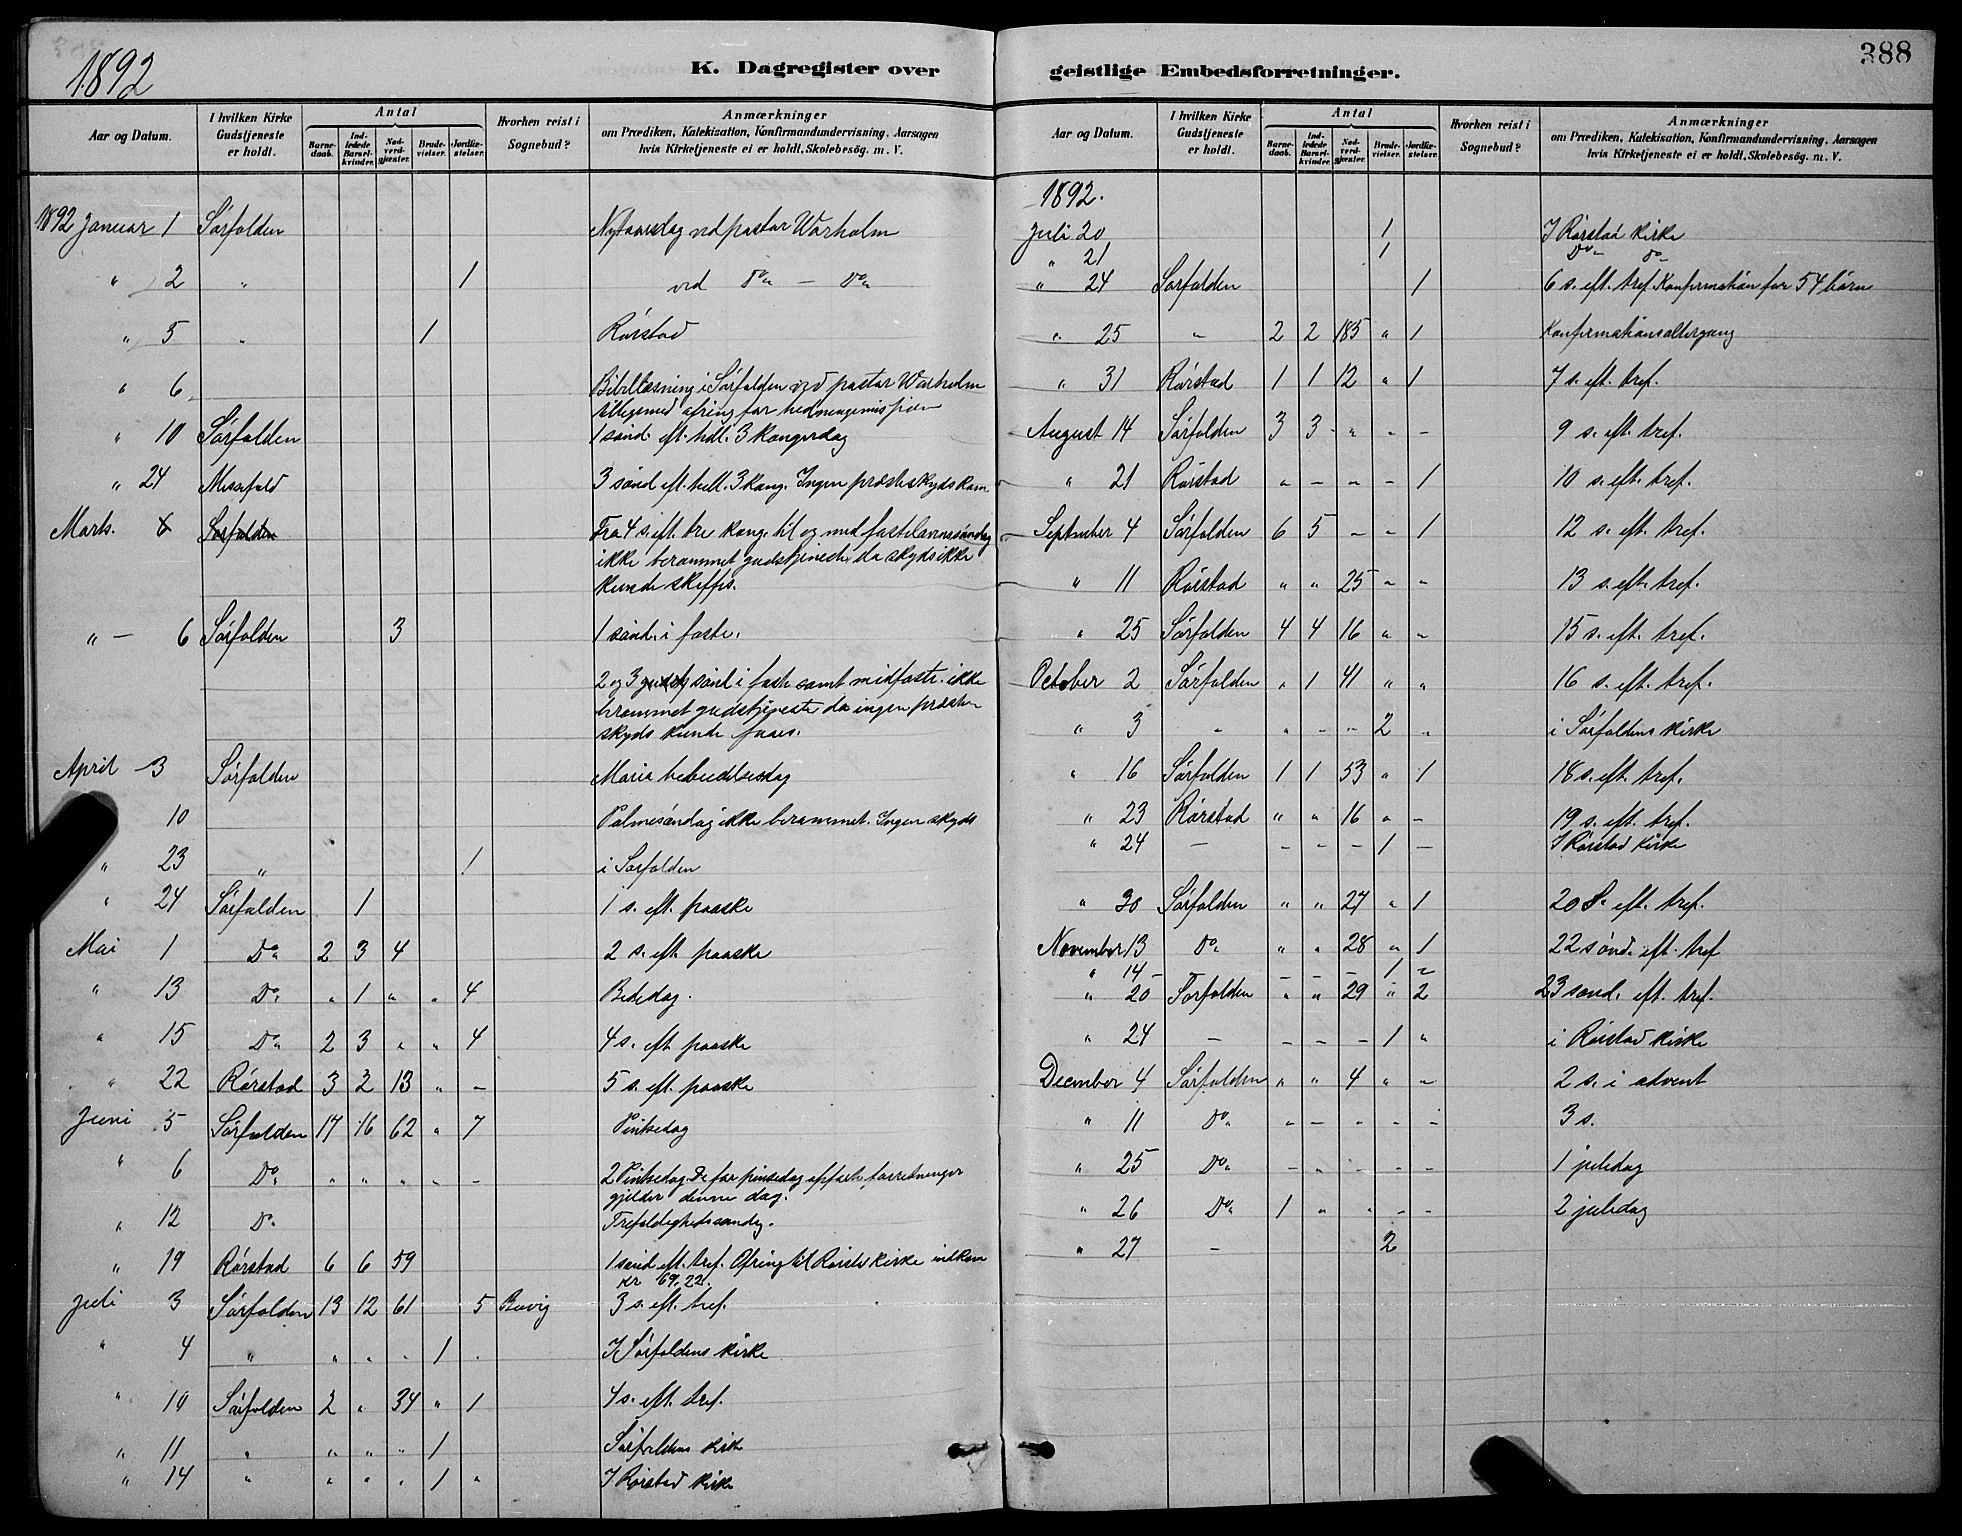 1892
K. Dagregister over geistlige Embedsforretninger.
388
Aar og Datum. I hvilken Kirke Gudstjeneste er holdt. Antal Barnedaab. Indledede Barselkvinder. Nadverdgjester. Brudevielser. Jordfæstelser. Hvorhen reist i Sognebud? Anmærkninger om Prædiken, Katekisation, Konfirmandundervisning, Aarsagen hvis Kirketjeneste ei er holdt, Skolebesøg. m. V.
1892 Januar 1 Sørfolden Nytaarsdag ved pastor Warholm
" 2 " 1 ved Do - Do
" 5 " 1 Rørstad
" 6 Bibellæsning i Sørfolden ved pastor Warholm
tilligemed ofring for hedningemission
" 10 Sørfolden 1 sønd. eft. hell. 3 Kongersdag
" 24 Messefald 3 sønd eft. hell. 3 Kong. Ingen præsteskyds kom
Marts. 6 Sørfolden Fra 4 s. eft. tre Kong. til og med fastelavnssøndag
ikke berammet gudstjeneste, da skyds ikke
kunde skaffes.
" - 6 Sørfolden 3 1 sønd. i faste.
2 og 3 sønd i faste samt midfaste ikke
berammet gudstjeneste da ingen præste
skyds kunde faaes.
April 3 Sørfolden Maria bebudelsesdag
10 Palmesøndag ikke berammet. Ingen skyds
" 23 " 1 i Sørfolden
" 24 Sørfolden 1 1 s. eft. paaske
Mai 1 Do 2 3 4 2 s. eft. paaske
" 13 Do " 1 " " 4 Bededag.
" 15 Do 2 3 " " 4 4 s. eft. paaske
" 22 Rørstad 3 2 13 " - 5 s. eft. paaske
Juni 5 Sørfolden 17 16 62 " 7 Pintsedag
" 6 Do " " " " - 2 Pintsedag. De for pinsedag opførte forretninger
gjelder denne dag.
" 12 Do Trefoldighedssøndag.
" 19 Rørstad 6 6 59 1 sønd eft. tref. Ofring til Rørstad kirke indkom
kr 69,22.
Juli 3 Sørfolden 13 12 61 5 Bøvig 3 s. eft. tref.
" 4 " " " " 1 . I Sørfoldens kirke
" 10 Sørfolden 2 " 34 " 1 4 s. eft. tref.
" 11 " " " " 1 Sørfoldens kirke
" 14 " " " " 1 " I Rørstad kirke
Aar og Datum. I hvilken Kirke Gudstjeneste er holdt. Antal Barnedaab. Indledede Barselkvinder. Nadverdgjester. Brudevielser. Jordfæstelser. Hvorhen reist i Sognebud? Anmærkninger om Prædiken, Katekisation, Konfirmandundervisning, Aarsagen hvis Kirketjeneste ei er holdt, Skolebesøg. m. V.
1892.
Juli 20 1 I Rørstad kirke
" 21 1 Do Do
" 24 Sørfolden 1 6 s. eft. tref. Konfirmation for 54 børn
" 25 " 2 2 185 " 1 Konfirmationsaltergang
" 31 Rørstad 1 1 12 " 1 7 s. eft. tref.
August 14 Sørfolden 3 3 - " - - 9 s. eft. tref.
" 21 Rørstad " - " - 1 10 s. eft. tref.
September 4 Sørfolden 6 5 - - 1 12 s. eft. tref.
" 11 Rørstad " " 25 " " 13 s. eft. tref.
" 25 Sørfolden 4 4 16 " " 15 s. eft. tref.
October 2 Sørfolden " 1 41 " " 16 s. eft. tref.
" 3 " " - - 2 " i Sørfoldens kirke
" 16 Sørfolden 1 1 53 " 1 18 s. eft. tref.
" 23 Rørstad " " 16 " - 19 s. eft. tref.
" 24 - - - - 1 - I Rørstad kirke
" 30 Sørfolden " " 27 " 1 20 S. eft. tref.
November 13 Do " " 28 " 1 22 sønd. eft. tref
" 14 - - - - 1 -
" 20 Sørfolden " " 29 " 2 23 sønd. eft. tref.
" 24 - - - - 1 " i Rørstad kirke
December 4 Sørfolden " " 4 " - 2 s. i advent
" 11 Do " - " - - 3 s.
" 25 Do - " - - - 1 juledag
" 26 Do 1 " " - - 2 juledag
" 27 - 2